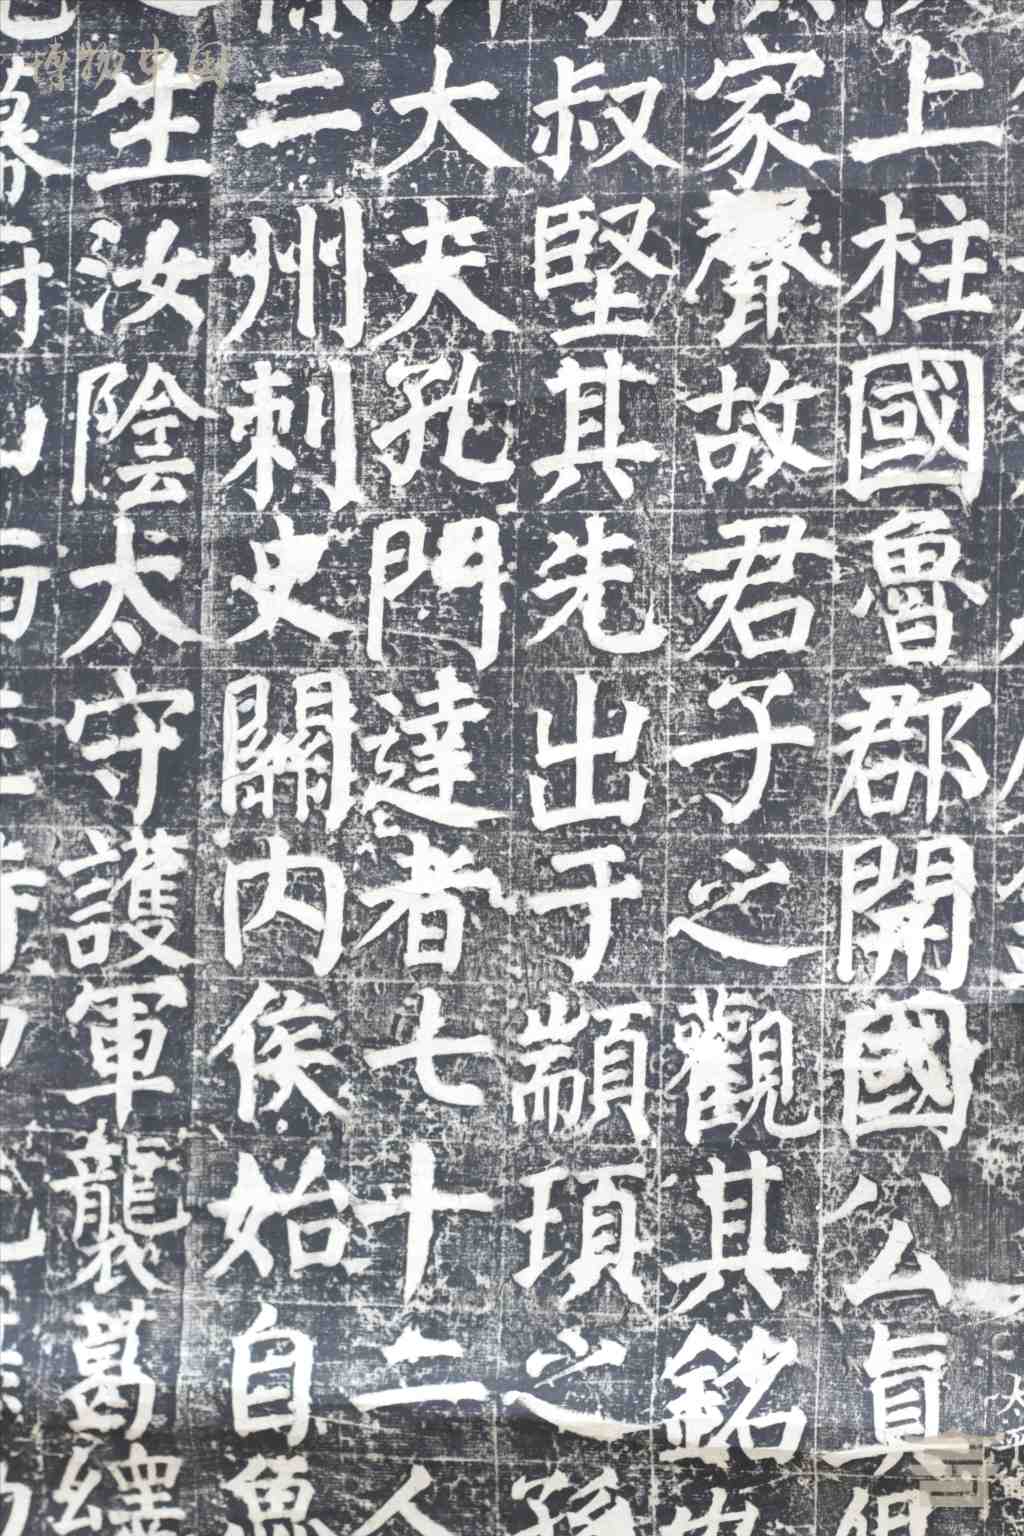 上柱國魯郡開國公真
家聲故君子之觀其銘也
叔堅其先出于顓頊之孫
大夫孔門達者七十二人
二州刺史關內侯始自魯
生汝陰太守護軍襲葛繹
博物中国